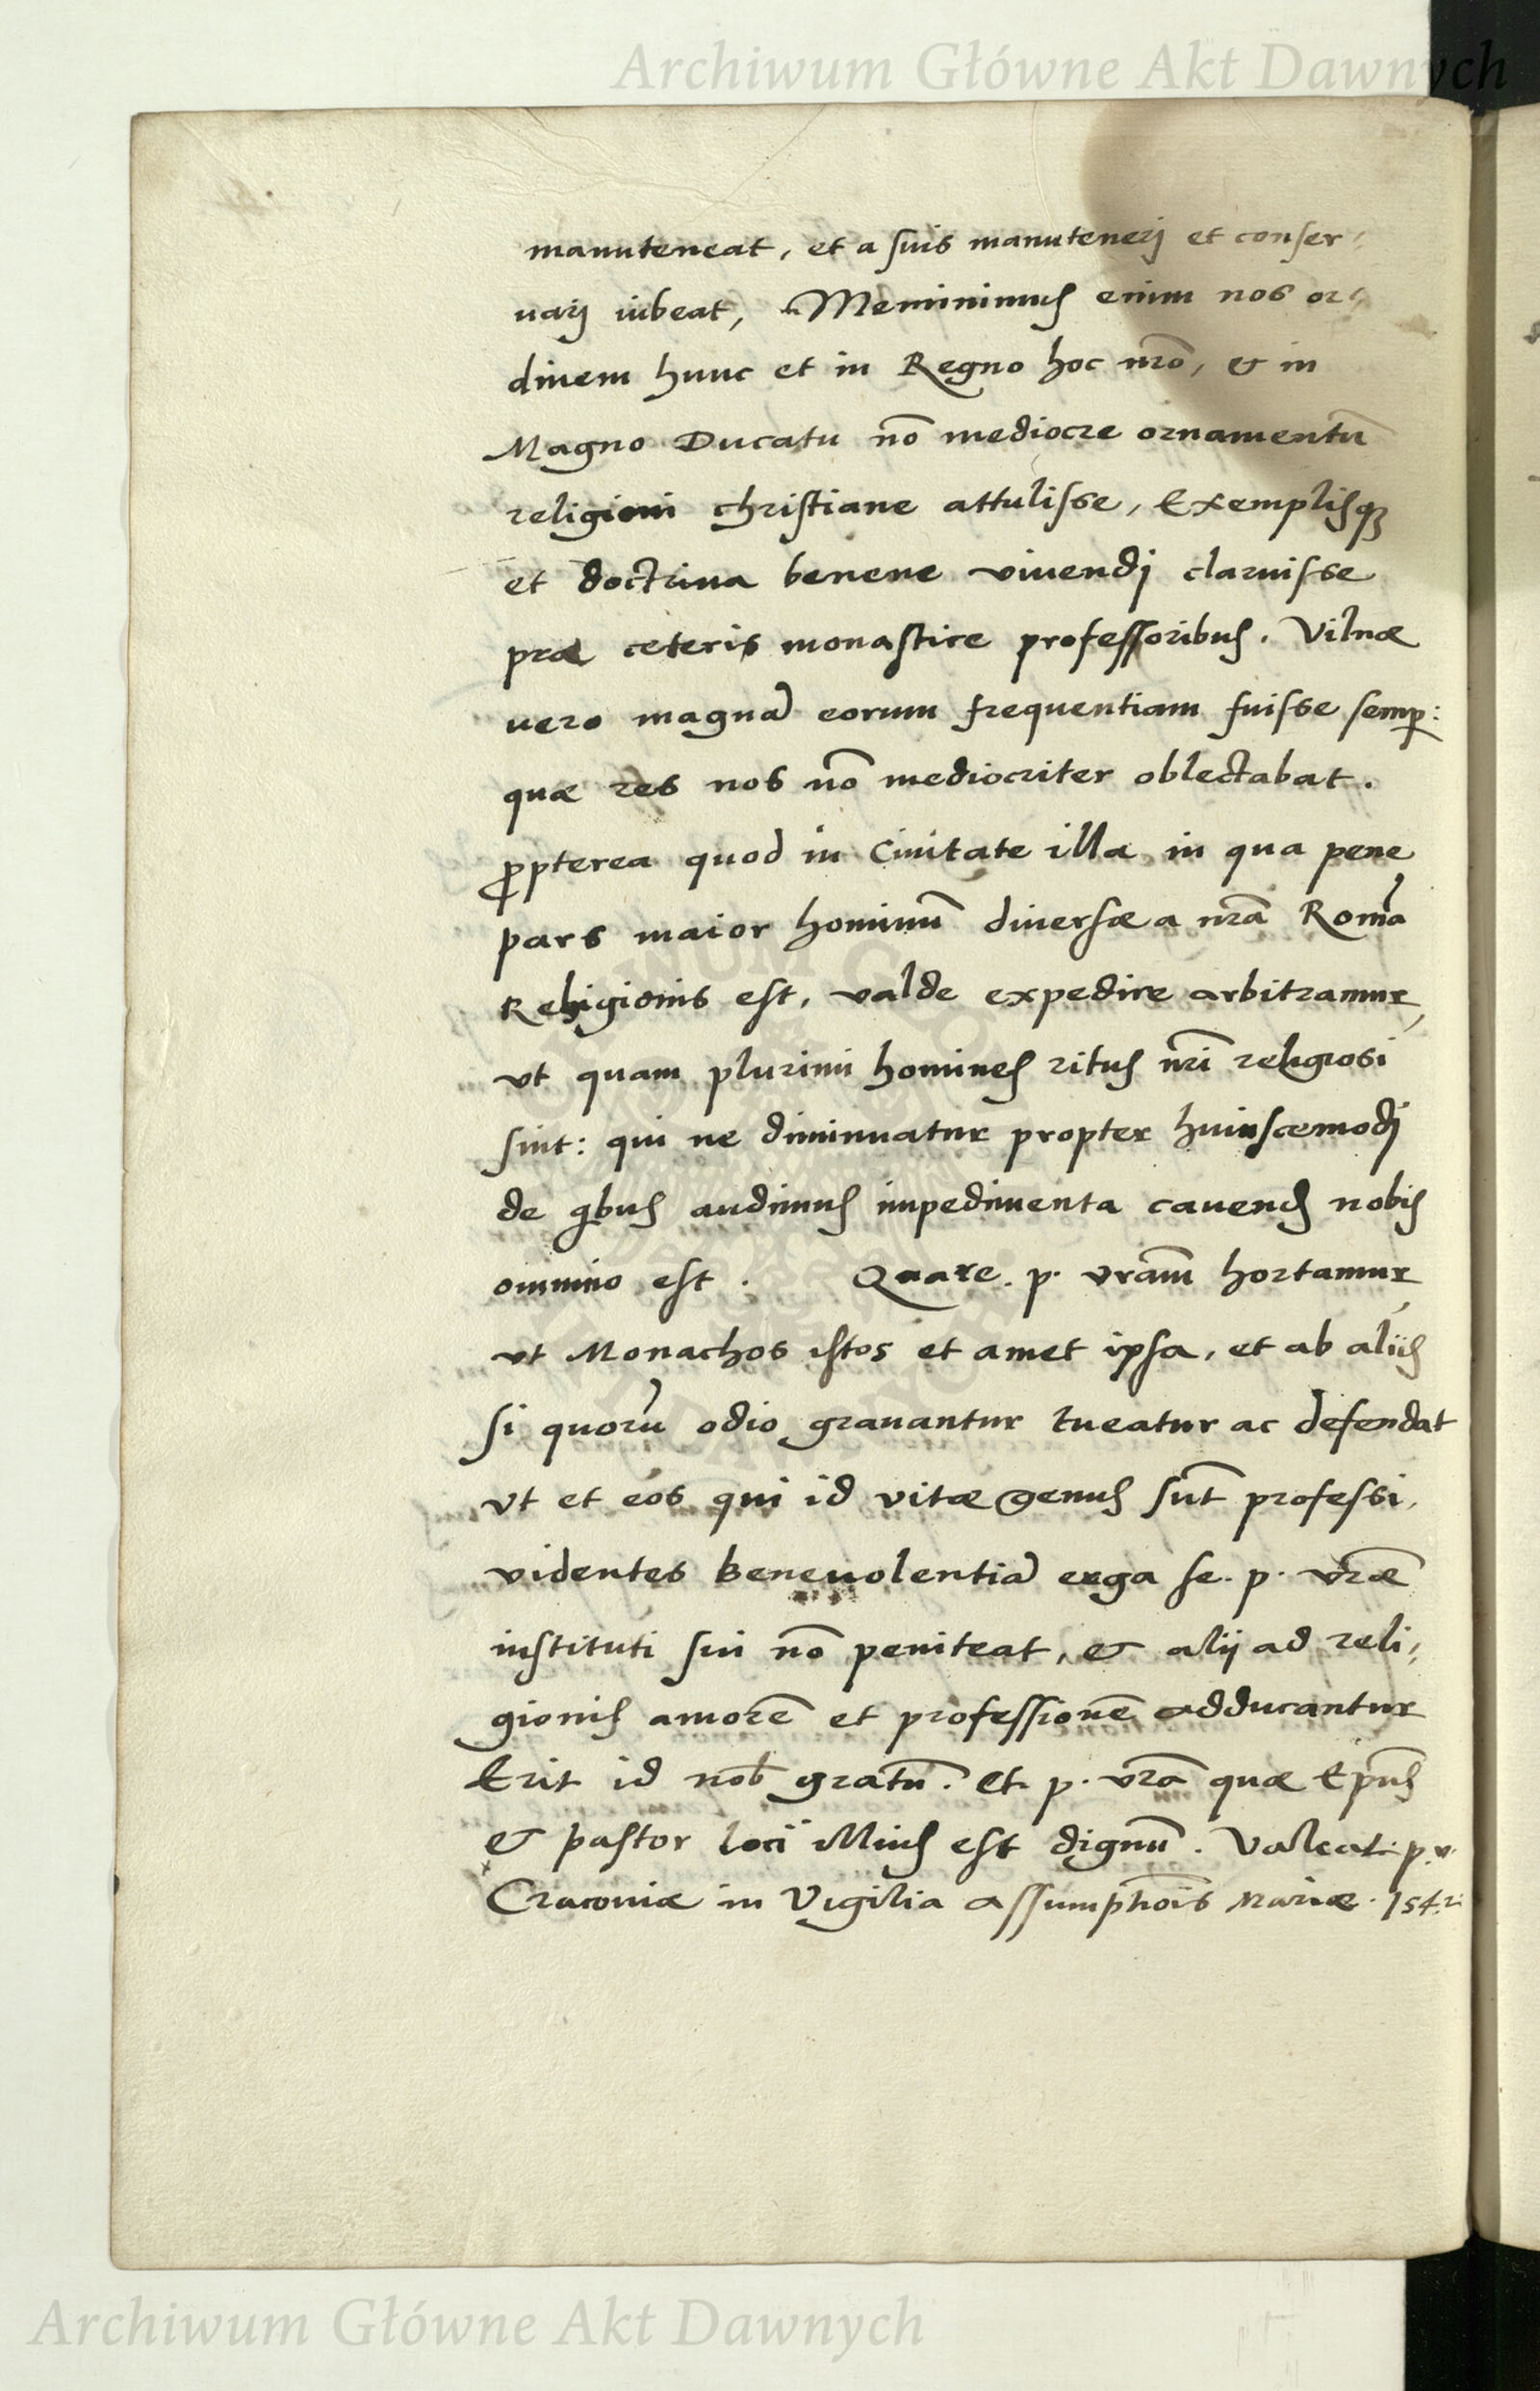 Archiwum Główne Akt Dawnych
manuteneat, et a suis manutenerj et conser-
uarj iubeat, Meminimus enim nos or-
dinem hunc et in Regno hoc nr̃o, & in
Magno Ducatu nõ mediocre ornamentũ
religioni christiane attulisse, Exemplisq3
et doctrina benene viuendj claruisse
præ ceteris monastice professoribus. Vilnæ
uero magnã eorum frequentiam fuisse semp:
quæ res nos nõ mediocriter oblectabat.
ꝓpterea quod in Ciuitate illa in qua pene
pars maior hominũ diuersæ a nr̃a Romã
Religionis est, valde expedire arbitramur,
vt quam plurimi homines ritus nr̃i religiosi
sint: qui ne diminuatur propter huiuscemodj
de qbus audimus impedimenta cauend nobis
omnino est. Quare. p. vr̃am hortamur
vt Monachos istos et amet ipsa, et ab alijs
si quorũ odio grauantur tueatur ac defendat
vt et eos qui id vitæ genus sũt professi,
videntes beneuolentiã erga se. p. vr̃æ
instituti sui nõ peniteat, & alij ad reli-
gionis amorẽ et professionẽ adducantur
Erit id nob gratũ. et. p. vr̃a quæ Ep̃us
& pastor loci illius est dignũ. Valeat. p. v.
Cracouiæ in Vigilia assumptiõis Mariæ. 1542
Archiwum Główne Akt Dawnych